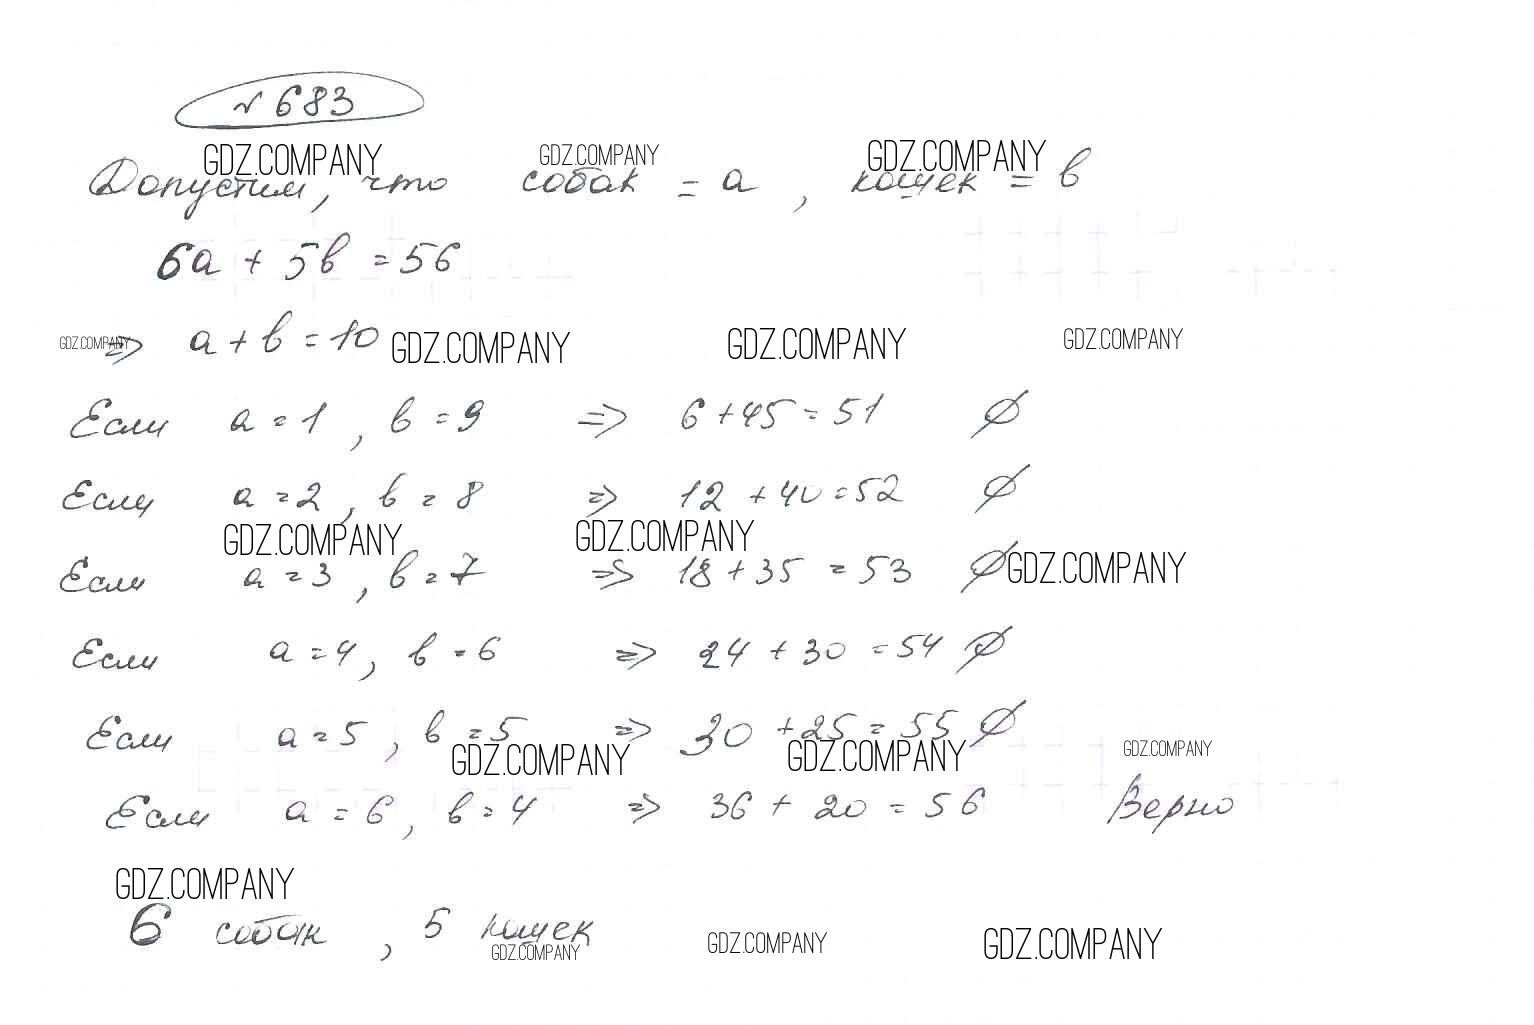 № 683
GDZ.COMPANY GDZ.COMPANY GDZ.COMPANY
Допустим, что собак = а, кошек = в
6а + 5в = 56
GDZ.COMPANY => а + в = 10 GDZ.COMPANY GDZ.COMPANY GDZ.COMPANY
Если а = 1, в = 9 => 6 + 45 = 51 ∅
Если а = 2, в = 8 => 12 + 40 = 52 ∅
GDZ.COMPANY GDZ.COMPANY
Если а = 3, в = 7 => 18 + 35 = 53 ∅ GDZ.COMPANY
Если а = 4, в = 6 => 24 + 30 = 54 ∅
Если а = 5, в = 5 => 30 + 25 = 55 ∅
GDZ.COMPANY GDZ.COMPANY GDZ.COMPANY
Если а = 6, в = 4 => 36 + 20 = 56 Верно
GDZ.COMPANY
6 собак, 5 кошек
GDZ.COMPANY GDZ.COMPANY GDZ.COMPANY